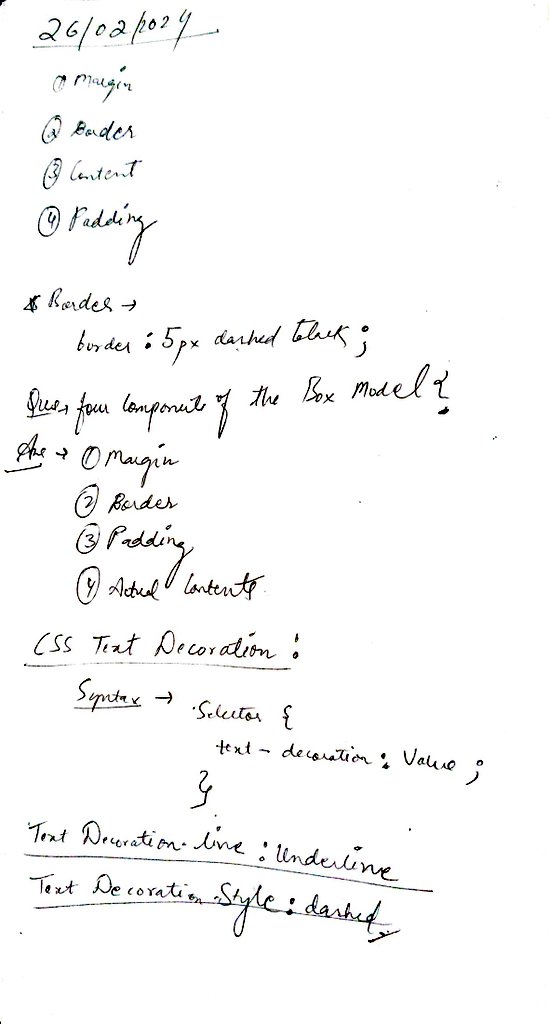 26/02/2024
① Margin
② Border
③ Content
④ Padding
* Border →
border : 5px dashed black ;
Ques→ four Components of the Box Model ?
Ans → ① Margin
② Border
③ Padding
④ Actual Contents
CSS Text Decoration :
Syntax →
Selector {
text - decoration : Value ;
}
Text Decoration - line : Underline
Text Decoration - Style : dashed